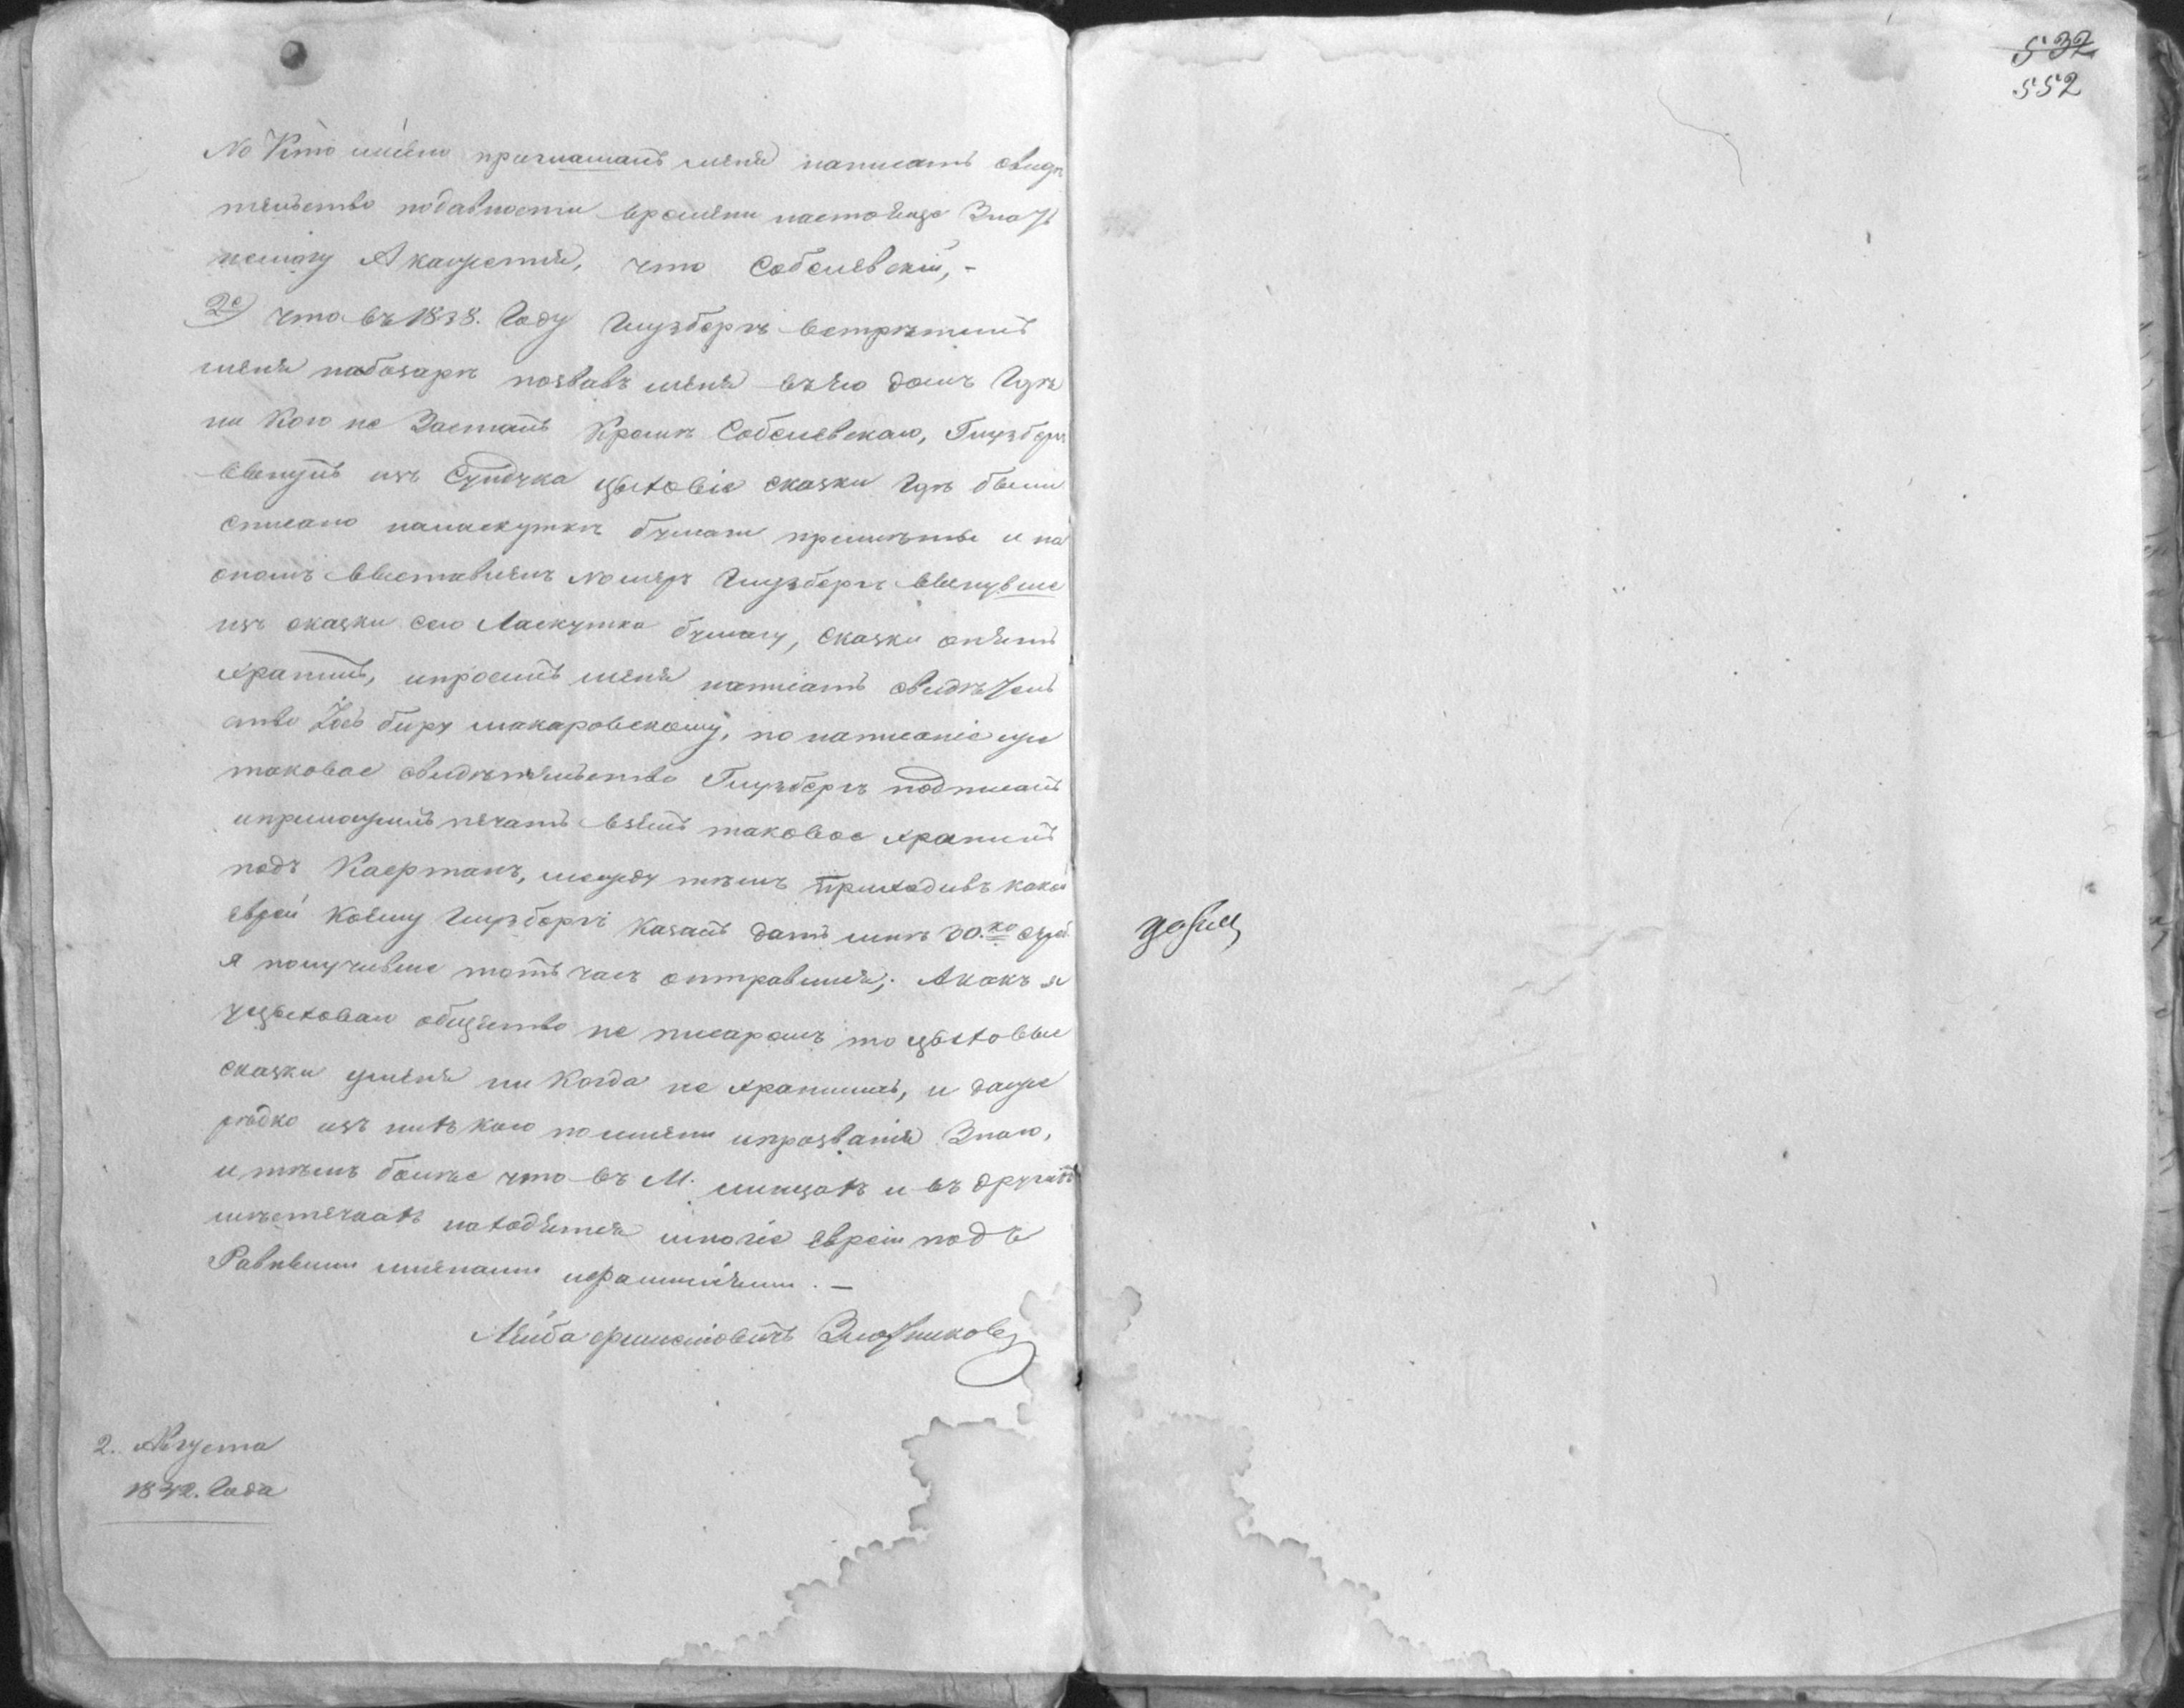 532
552
No Кто имено приглашалъ меня написатъ свидѣ
тельство подавности времени настояще Знатъ
немогу А кажется, что Собелевскій, -
2е) что въ 1838. Году Гинзбергъ встрѣтилъ
меня набозарѣ позвавъ меня въ его домъ Гдѣ
ни Кого не Засталъ Кромѣ Собелевскаго, Гинзбергъ
вынулъ изъ Сундука цеховіе сказки Гдѣ были
списаноналаскуткѣ бумаги примѣты и на
ономъ выставленъ номеръ Гинзбергъ вынувше
изъ сказки сего Ласкутка бумагу, сказки опятъ
хранилъ, ипросилъ меня написатъ свидѣтель
ство биру макаровскому, по написаніе уже
таковое свидѣтельство Гинзбергъ подписалъ
иприложилъ печатъ взялъ таковое хранилъ
подъ Кафтанъ, между тѣмъ приходивъ какой
еврей Коему Гинзбергъ Казалъ датъ мнѣ 30. ко сереб
я получивше тотъ часъ отправился; Акакъ я
уцеховаго общество не писаромъ то цеховые
сказки уменя ни Когда не хранились, и даже
рѣдко изъ нихъ кого поимени ипрозванія Знаю,
и тѣмъ болѣе что въ М. минцахъ и въ другихъ
мѣстечкахъ находятся многіе евреи подъ
Равными именами ифамиліями. —
Лейба
2. Августа
1842. Года